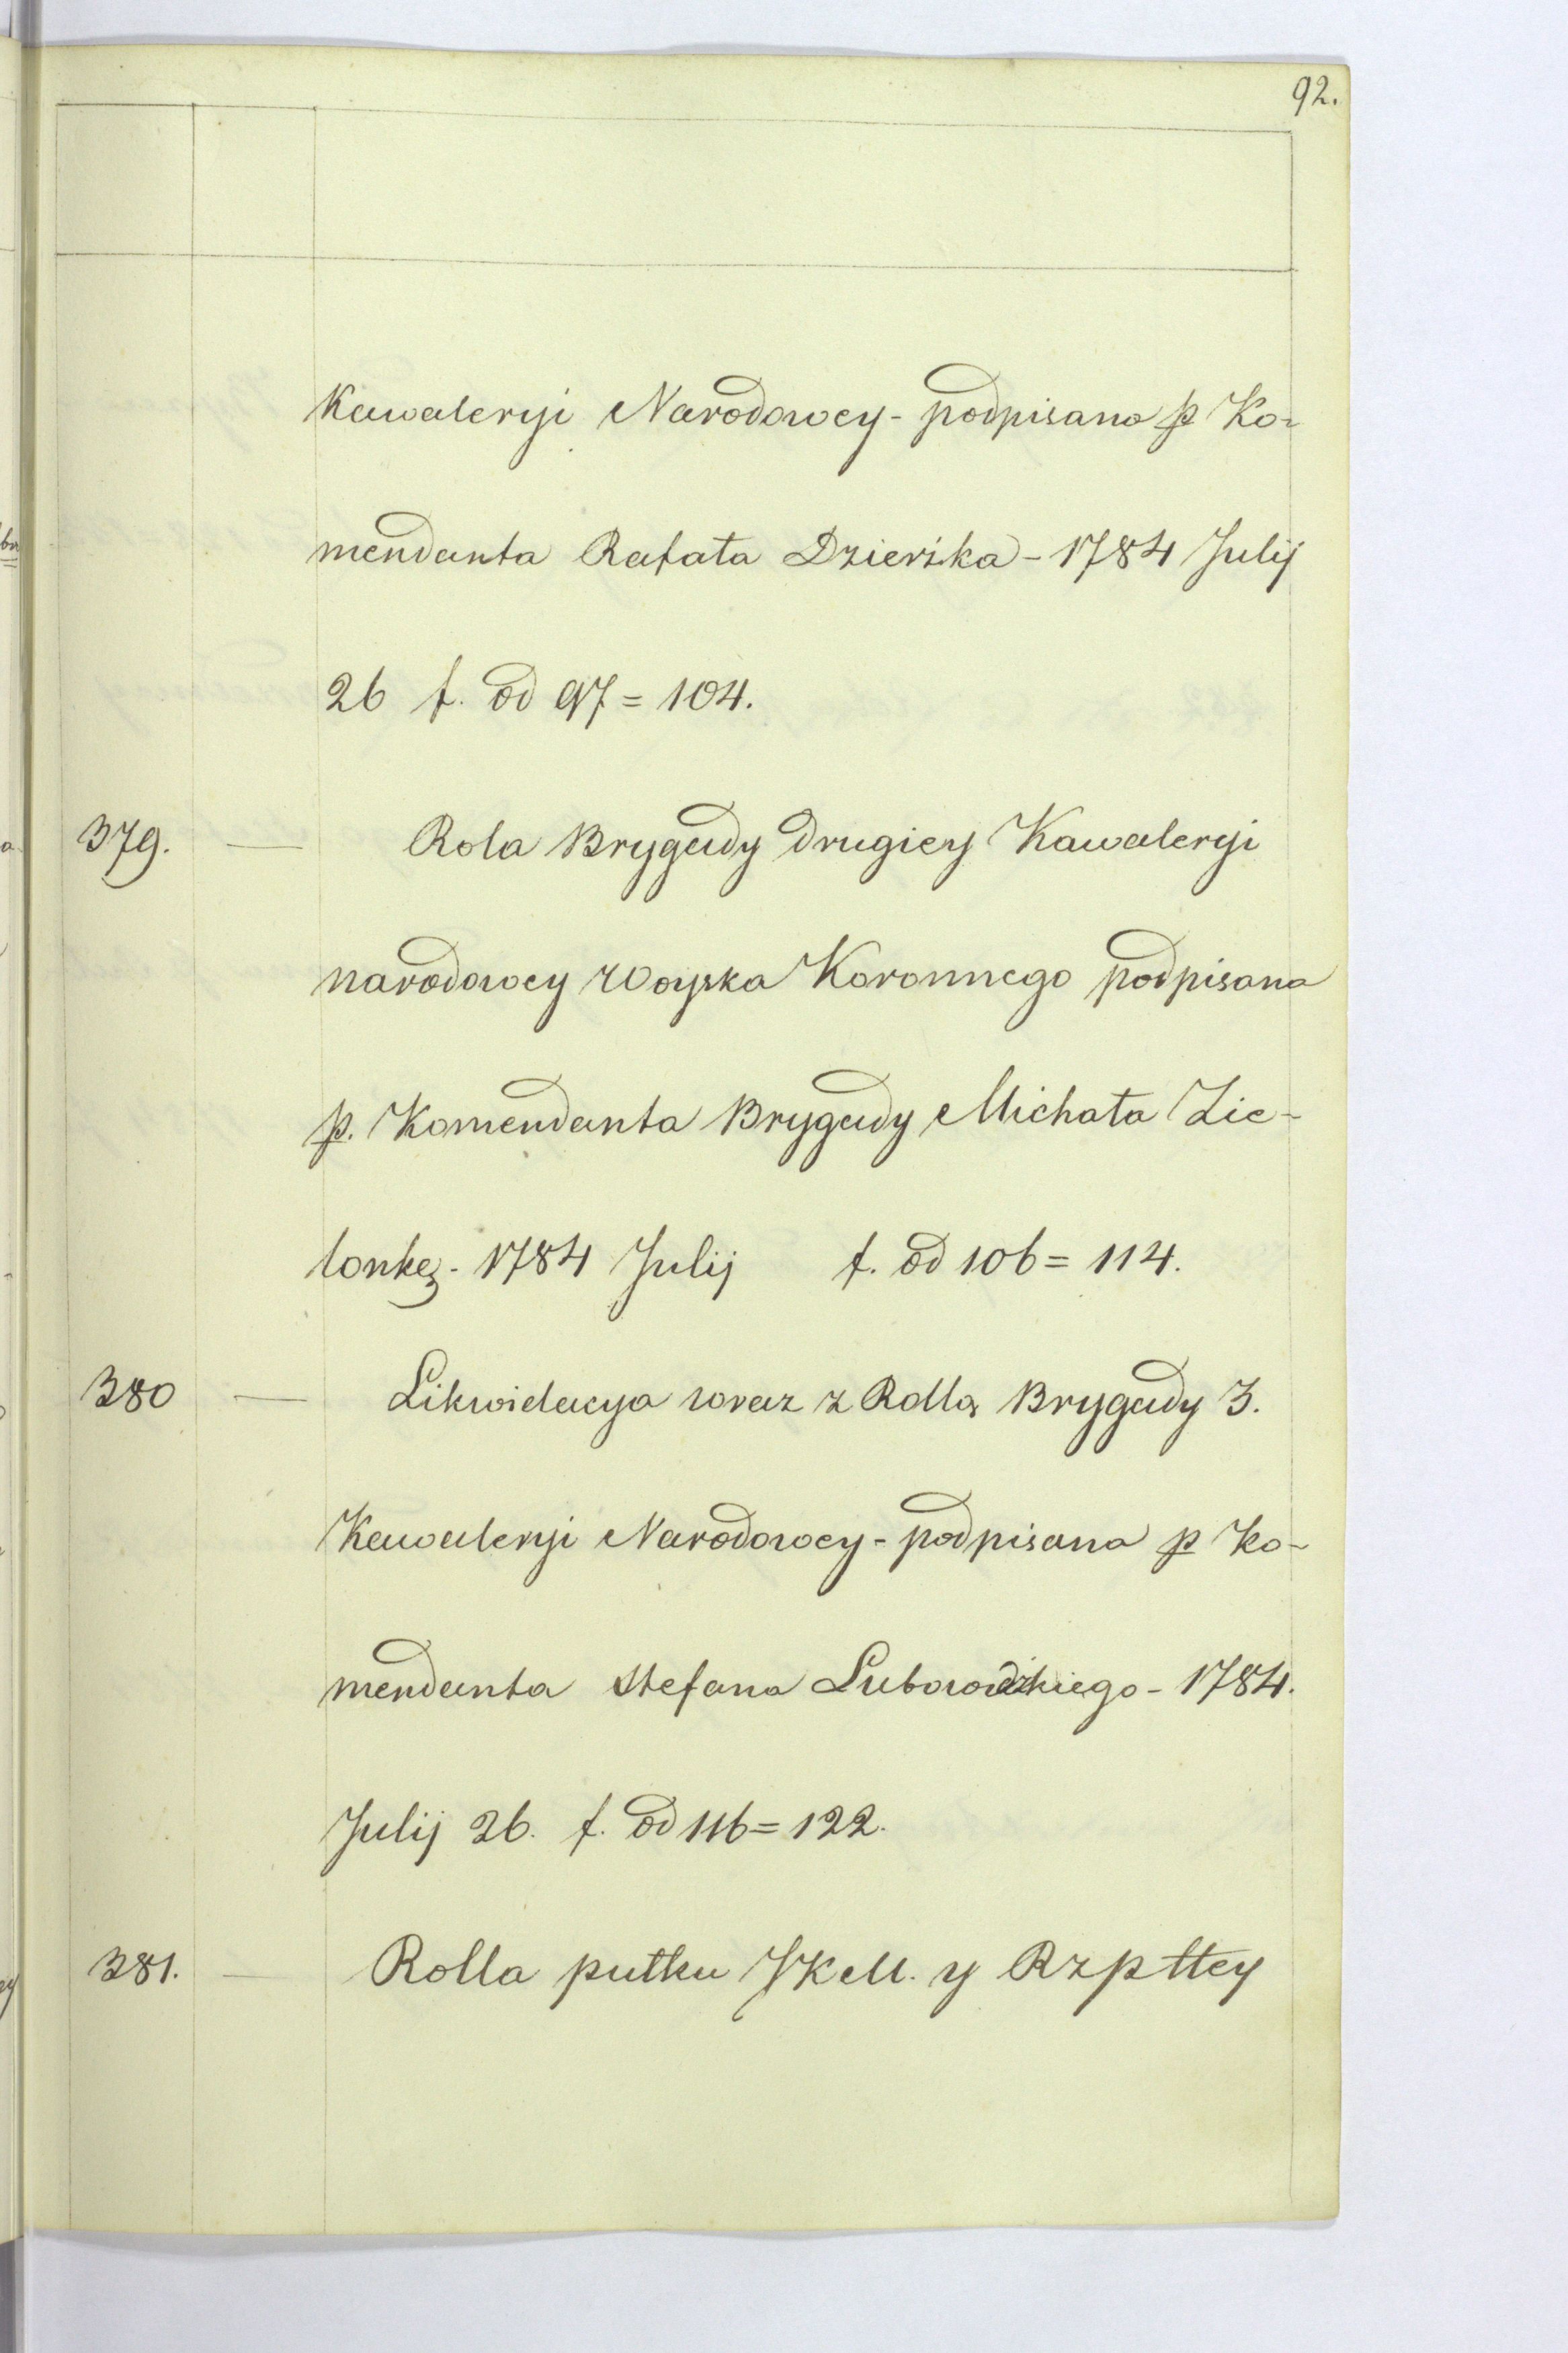 92.
Kawaleryi Narodowey - podpisana p Ko-
mendanta Rafała Dzierżka - 1784 Julij
26 f. od 97 = 104.
379. — Rola Brygady drugiey Kawaleryi
narodowey Woyska Koronnego podpisana
p. Komendanta Brygady Michała Zie-
lonkę - 1784 Julij f. od 106 = 114.
380 — Likwidacya wraz z Rollą Brygady 3.
Kawaleryi Narodowey - podpisana p Ko-
mendanta Stefana - 1784.
Julij 26. f. od 116 = 122.
381. — Rolla pułku JKM. y Rzpltey